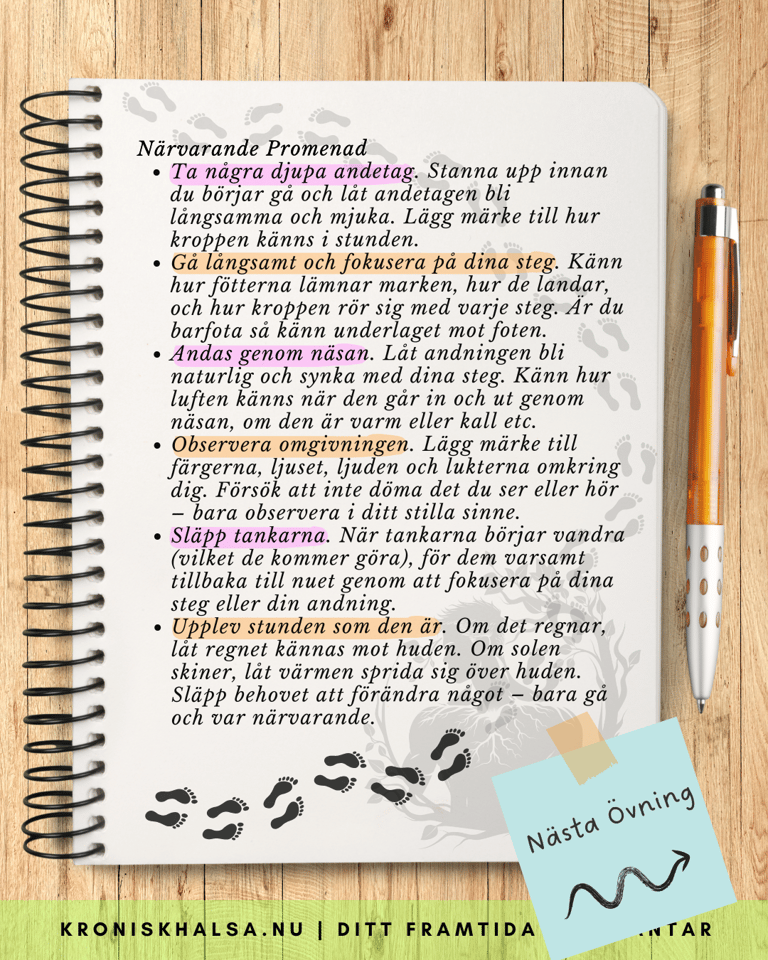 Närvarande Promenad
• Ta några djupa andetag. Stanna upp innan
du börjar gå och låt andetagen bli
långsamma och mjuka. Lägg märke till hur
kroppen känns i stunden.
• Gå långsamt och fokusera på dina steg. Känn
hur fötterna lämnar marken, hur de landar,
och hur kroppen rör sig med varje steg. Är du
barfota så känn underlaget mot foten.
• Andas genom näsan. Låt andningen bli
naturlig och synka med dina steg. Känn hur
luften känns när den går in och ut genom
näsan, om den är varm eller kall etc.
• Observera omgivningen. Lägg märke till
färgerna, ljuset, ljuden och lukterna omkring
dig. Försök att inte döma det du ser eller hör
– bara observera i ditt stilla sinne.
• Släpp tankarna. När tankarna börjar vandra
(vilket de kommer göra), för dem varsamt
tillbaka till nuet genom att fokusera på dina
steg eller din andning.
• Upplev stunden som den är. Om det regnar,
låt regnet kännas mot huden. Om solen
skiner, låt värmen sprida sig över huden.
Släpp behovet att förändra något – bara gå
och var närvarande.
Nästa Övning
KRONISKHALSA.NU | DITT FRAMTIDA